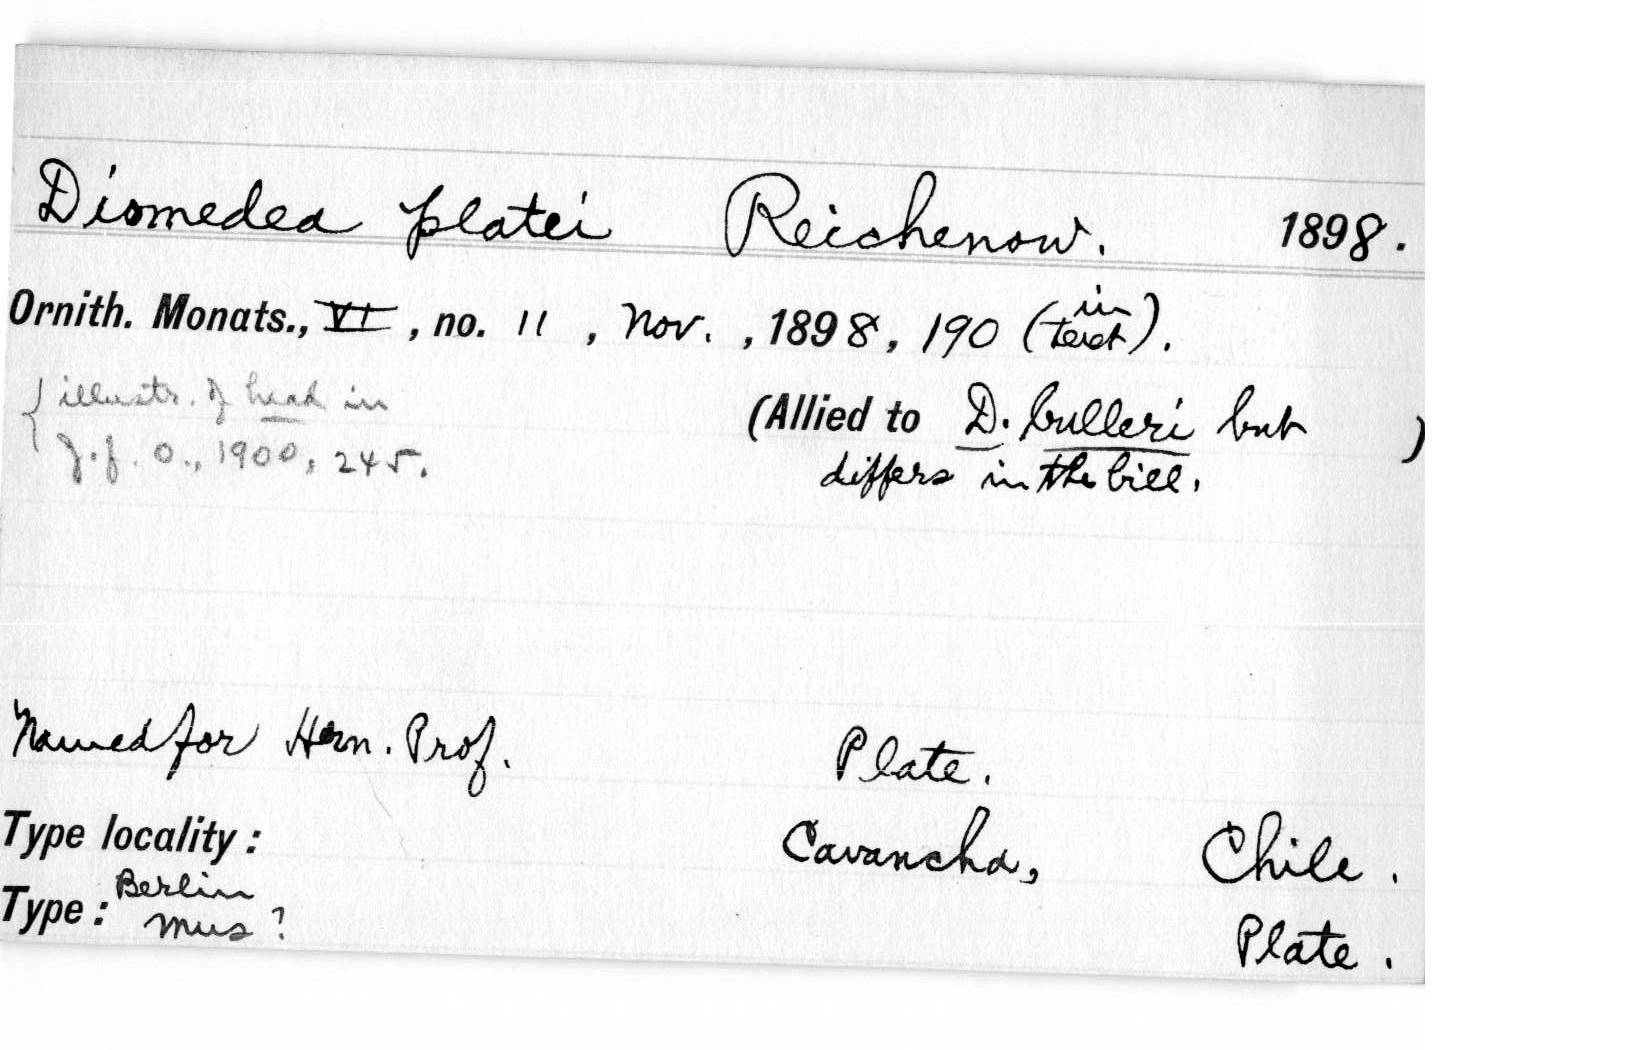 Diomedea platei Reichenow. 1898.
Ornith. Monats., VI, no. 11, Nov., 1898, 190 (in text).
{illustr. of head in
J. f. O., 1900, 245.
(Allied to D. bulleri but )
differs in the bill.
Named for Herrn. Prof. Plate.
Type locality: Cavancha, Chile.
Type: Berlin Mus? Plate.